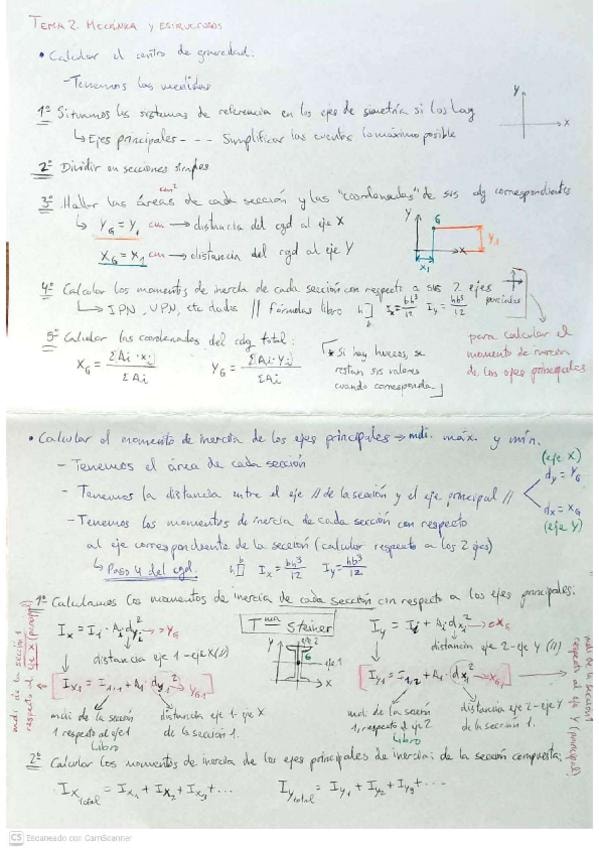 TEMA 2. MECÁNICA Y ESTRUCTURAS
• Calcular el centro de gravedad:
- Tenemos las medidas
1º Situamos los sistemas de referencia en los ejes de simetría si los hay
↳ Ejes principales - - - Simplificar las cuentas lo máximo posible
y
x
2º Dividir en secciones simples
3º Hallar las áreas de cada sección y las "coordenadas" de sus cdg correspondientes
cm²
↳ Y_G = Y_1 cm → distancia del cgd al eje X
X_G = X_1 cm → distancia del cgd al eje Y
Y
G
x
Y_1
x_1
4º Calcular los momentos de inercia de cada sección con respecto a sus 2 ejes
parciales
↳ IPN, UPN, etc dados // fórmulas libro h b I_x = bh³/12 I_y = hb³/12
5º Calcular las coordenadas del cdg total:
X_G = ΣAi · xi / ΣAi Y_G = ΣAi · Yi / ΣAi
* Si hay huecos, se
restan sus valores
cuando corresponda
para calcular el
momento de inercia
de los ejes principales
• Calcular el momento de inercia de los ejes principales → mdi. máx. y mín.
- Tenemos el área de cada sección
- Tenemos la distancia entre el eje // de la sección y el eje principal //
(eje X)
dy = Y_G
dx = X_G
(eje Y)
- Tenemos los momentos de inercia de cada sección con respecto
al eje correspondiente de la sección (calcular respecto a los 2 ejes)
↳ Paso 4 del cgd. h b I_x = bh³/12 I_y = hb³/12
1º Calculamos los momentos de inercia de cada sección con respecto a los ejes principales:
I_x = I_1 + A_i · dy_i² → Y_G
Tma Steiner
I_y = I_i + A_i · dx_i² → X_G
distancia eje 1 - eje X (//)
Y
eje 2
G
eje 1
x
distancia eje 2 - eje Y (//)
I_x1 = I_1,1 + A_1 · dy_1² → Y_G1
I_y1 = I_1,2 + A_1 · dx_1² → X_G1
mdi de la sección
1 respecto al eje 1
Libro
distancia eje 1 - eje X
de la sección 1.
mdi de la sección
1, respecto al eje 2
Libro
distancia eje 2 - eje Y
de la sección 1.
mdi de la sección 1
respecto al eje X (principal)
mdi de la sección 1
respecto al eje Y (principal)
2º Calcular los momentos de inercia de los ejes principales de inercia: de la sección compuesta:
I_x total = I_x1 + I_x2 + I_x3 + ... I_y total = I_y1 + I_y2 + I_y3 + ...
CS Escaneado con CamScanner